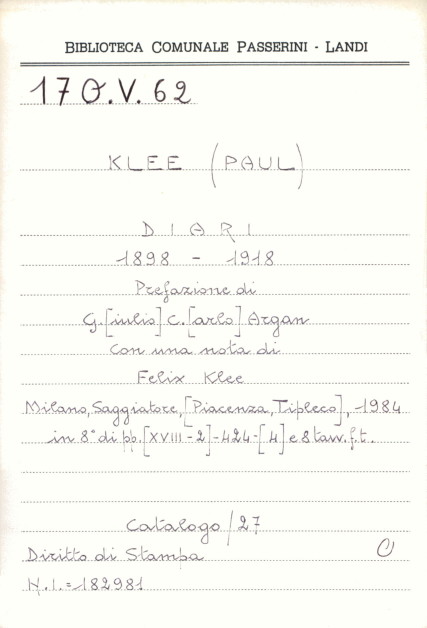 BIBLIOTECA COMUNALE PASSERINI - LANDI
17 O.V. 62
KLEE (PAUL)
DIARI
1898 - 1918
Prefazione di
G.[iulio] C.[arlo] Argan
con una nota di
Felix Klee
Milano, Saggiatore, [Piacenza, Tipleco], 1984
in 8° di pp. [XVIII-2]-424-[4] e 8 tavv. f.t.
Catalogo / 27
Diritto di Stampa
N.I. = 182981